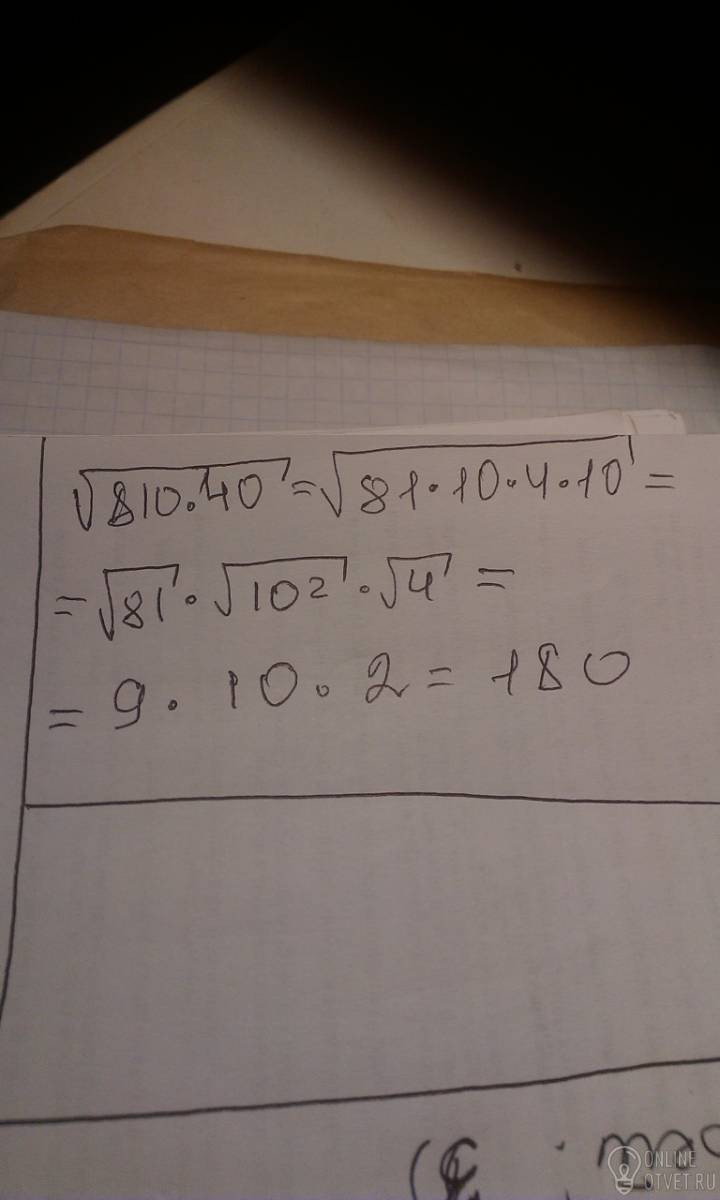 √810·40 = √81·10·4·10 =
= √81 · √10² · √4 =
= 9 · 10 · 2 = 180
ONLINE
OTVET.RU